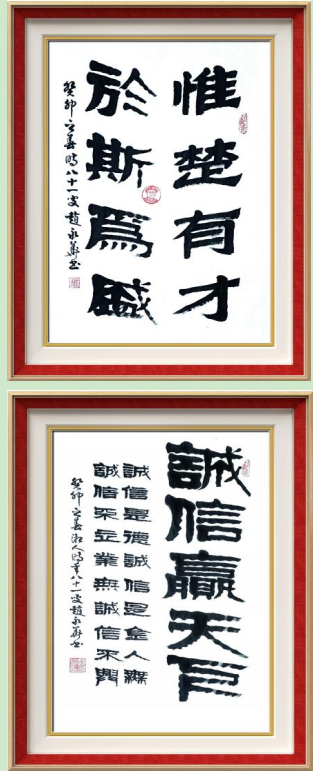 惟楚有才
於斯爲盛
癸卯之春時八十一叟趙永華书
誠信贏天下
誠信是德誠信是金人無
誠信不立業無誠信不興
癸卯之春湘人時年八十一叟趙永華书